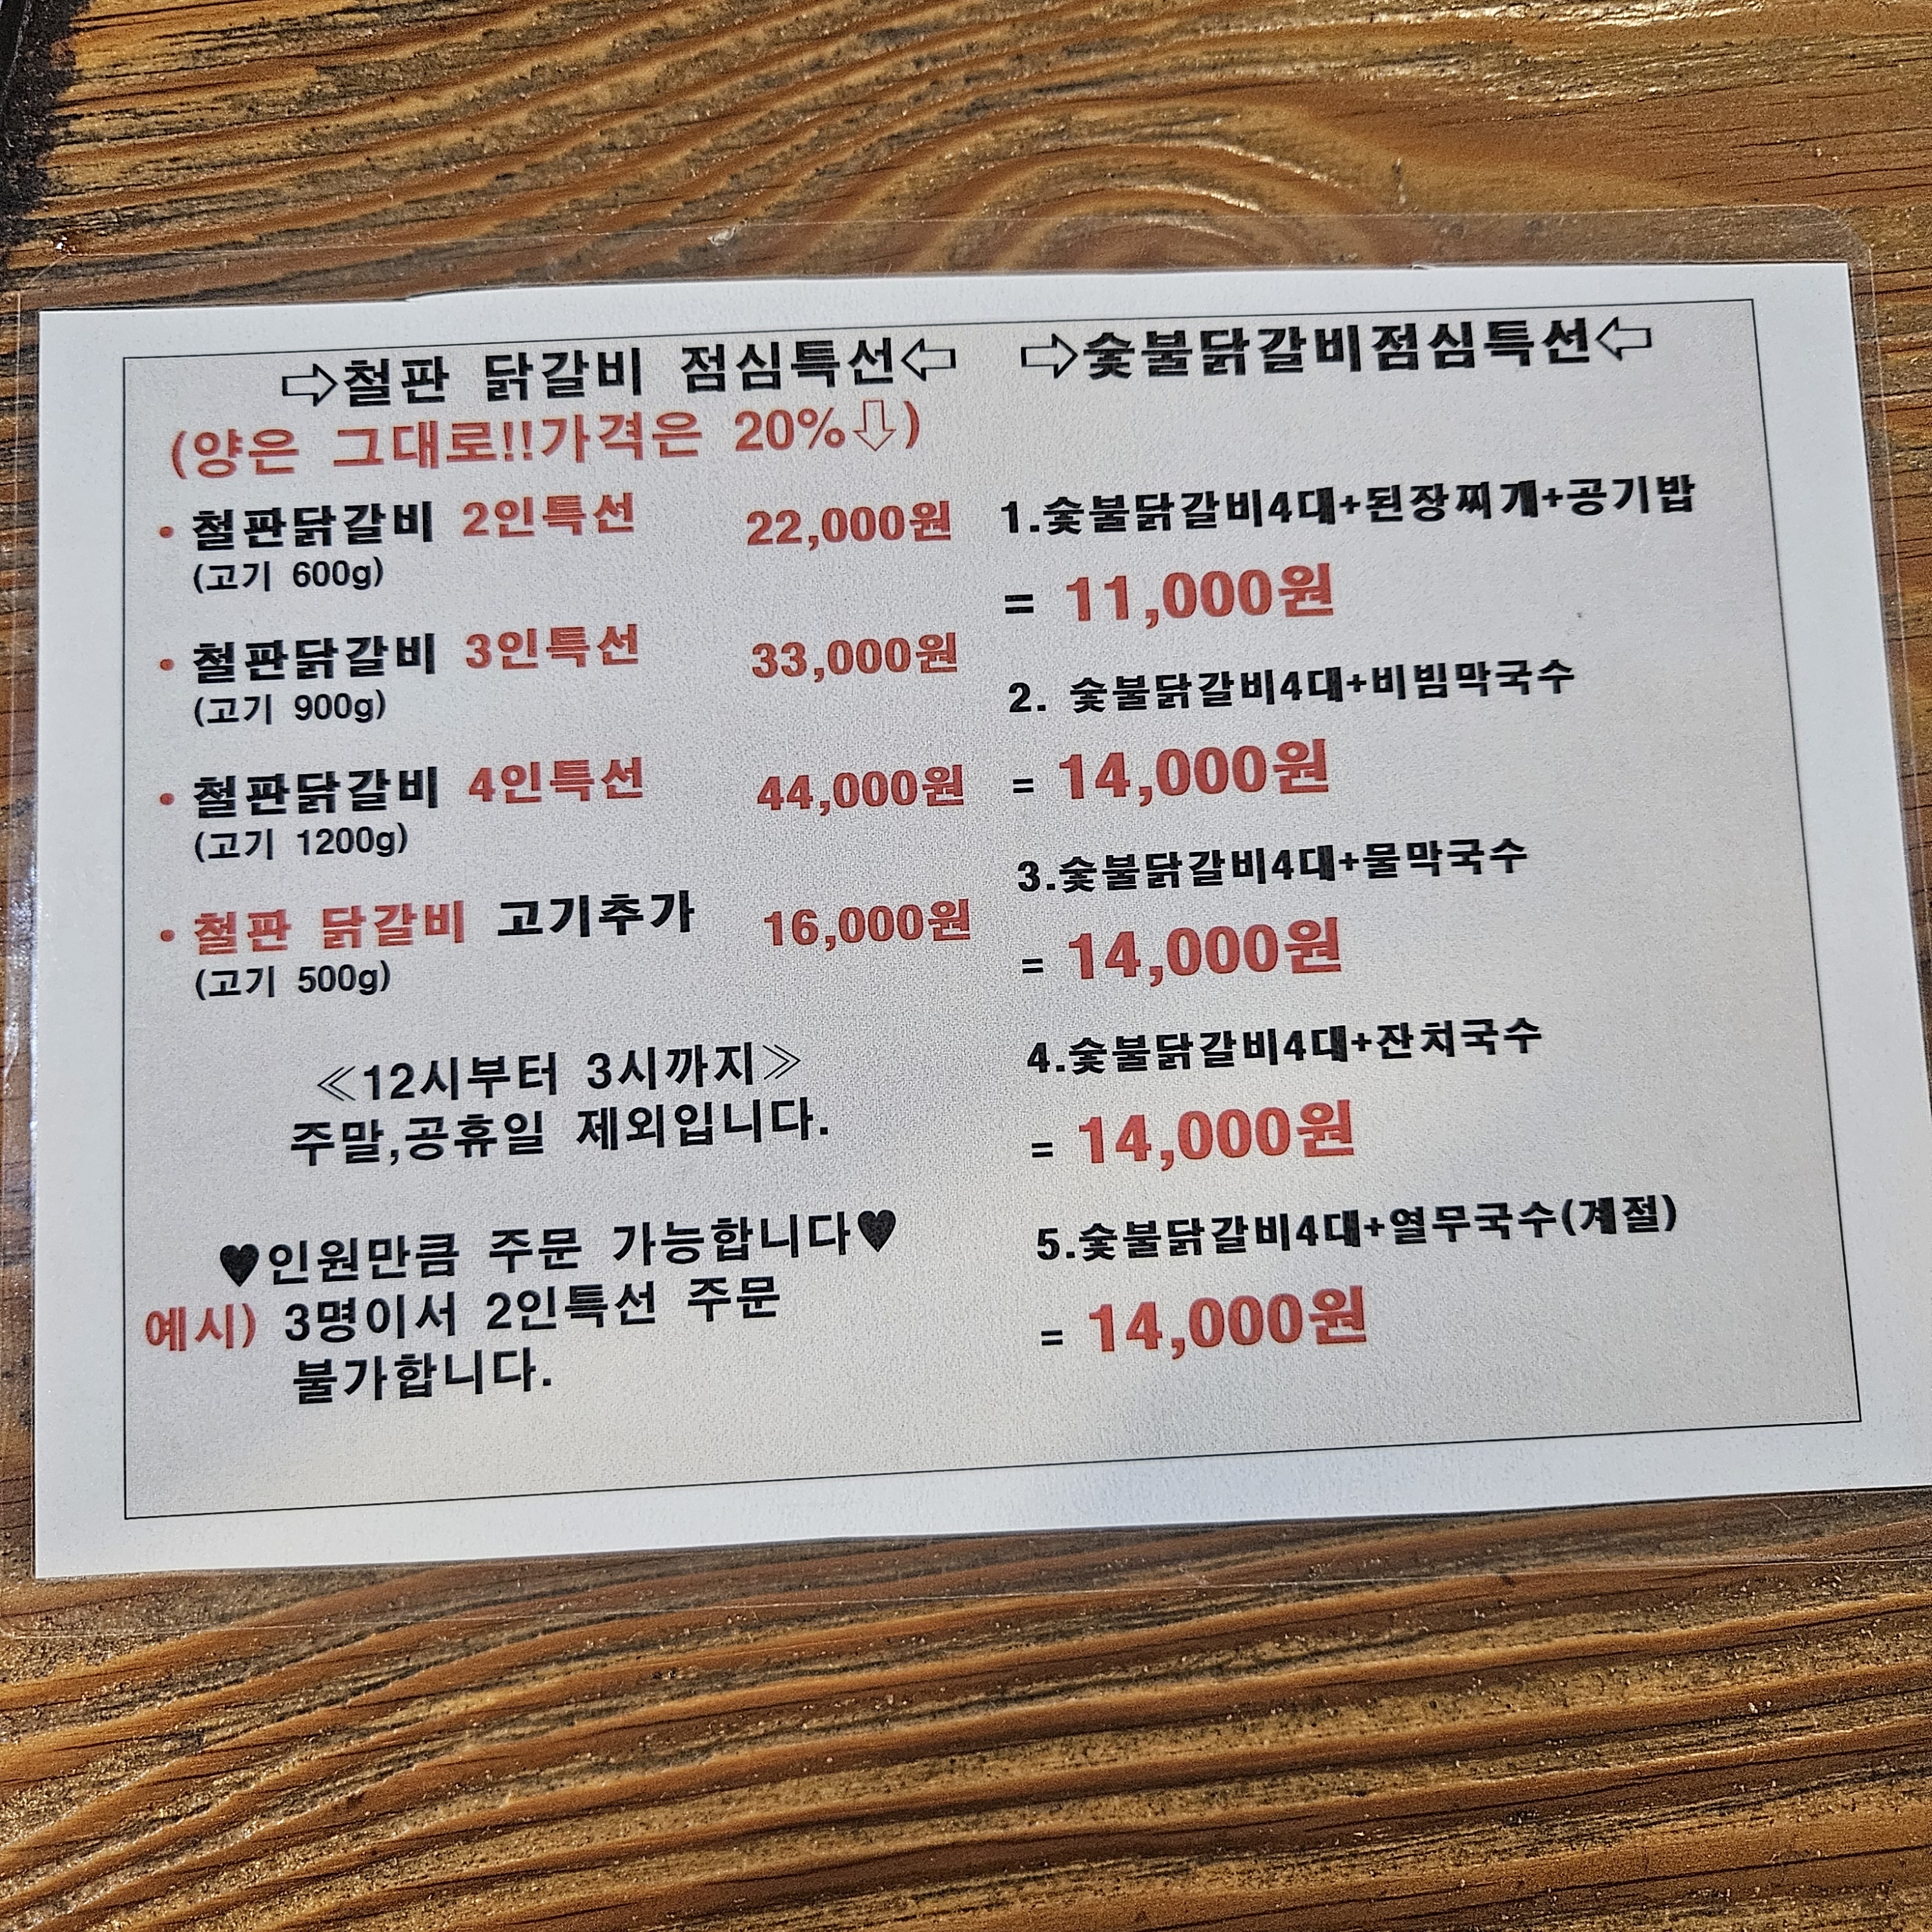 ⇨철판 닭갈비 점심특선⇦
(양은 그대로!!가격은 20%⇩)
• 철판닭갈비 2인특선 22,000원
(고기 600g)
• 철판닭갈비 3인특선 33,000원
(고기 900g)
• 철판닭갈비 4인특선 44,000원
(고기 1200g)
• 철판 닭갈비 고기추가 16,000원
(고기 500g)
≪12시부터 3시까지≫
주말,공휴일 제외입니다.
♥인원만큼 주문 가능합니다♥
예시) 3명이서 2인특선 주문
불가합니다.
⇨숯불닭갈비점심특선⇦
1.숯불닭갈비4대+된장찌개+공기밥
= 11,000원
2. 숯불닭갈비4대+비빔막국수
= 14,000원
3.숯불닭갈비4대+물막국수
= 14,000원
4.숯불닭갈비4대+잔치국수
= 14,000원
5.숯불닭갈비4대+열무국수(계절)
= 14,000원